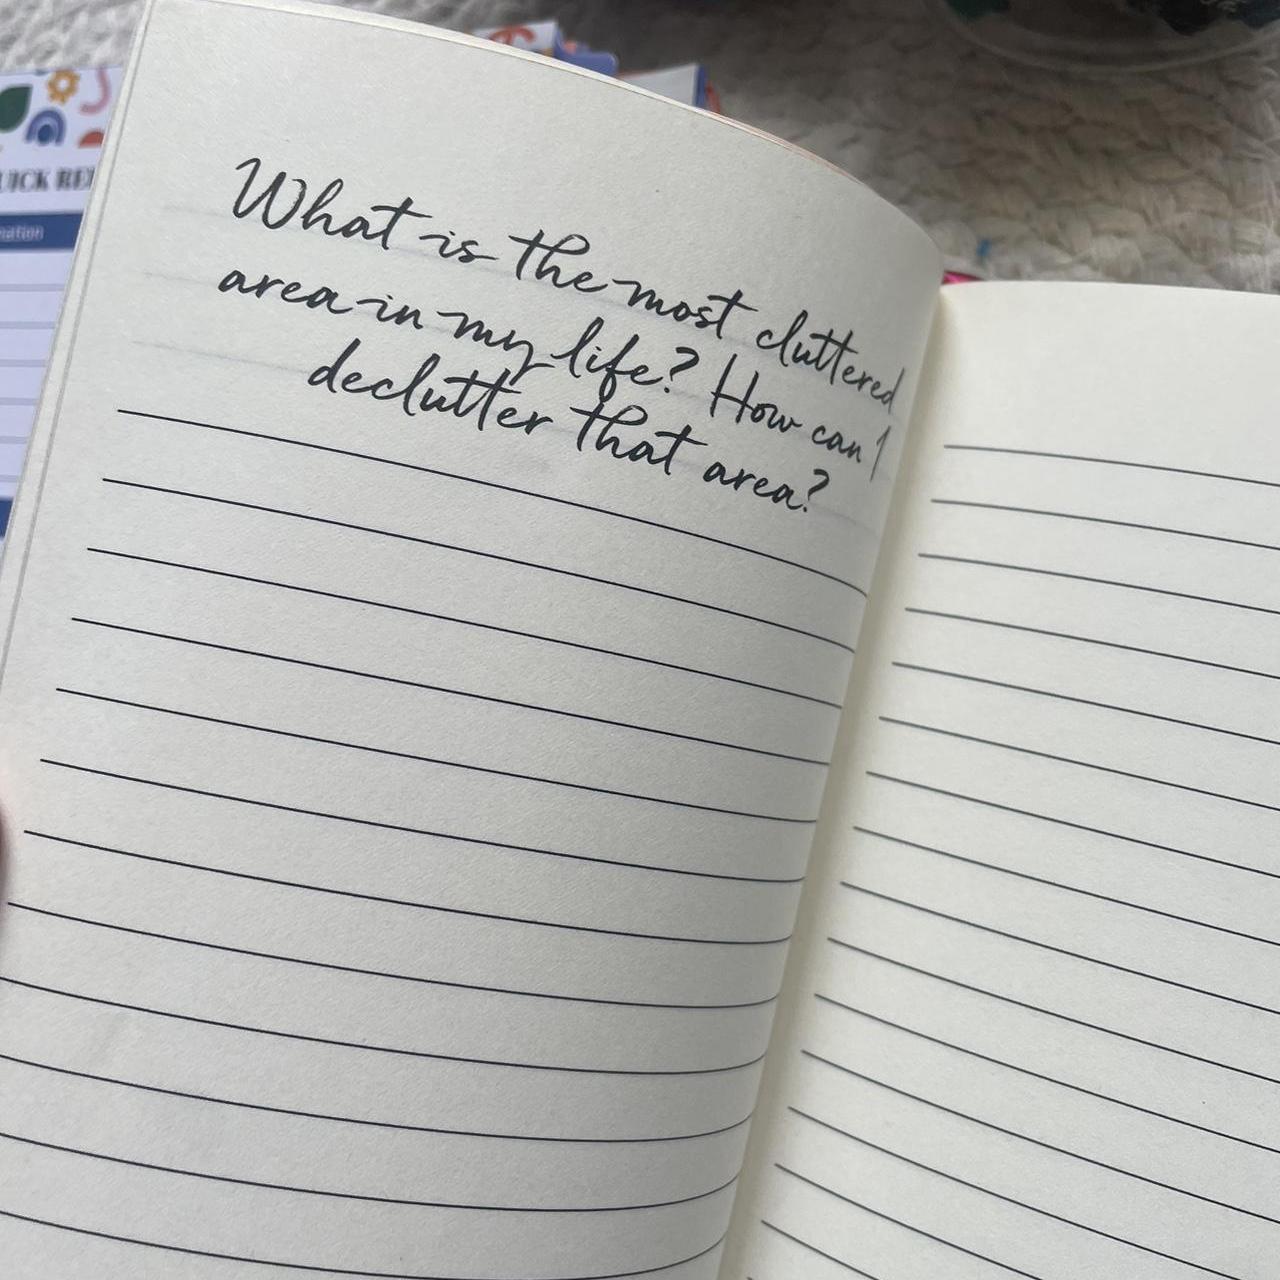 What is the most cluttered
area in my life? How can I
declutter that area?
UICK RE
mation